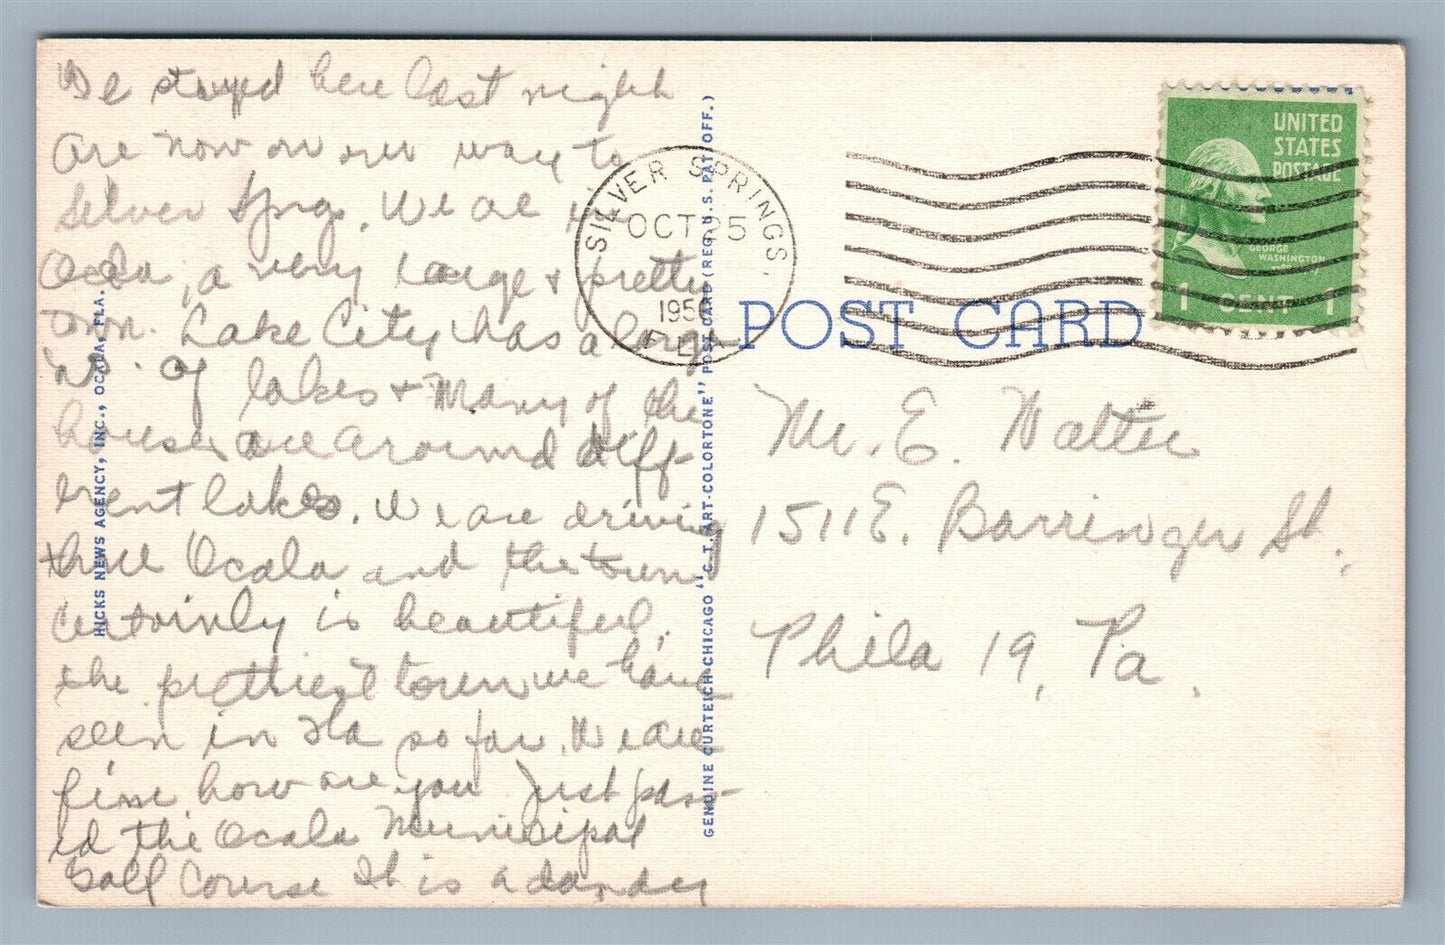 We stayed here last night
are now on our way to
Silver Spngs. We are in
Ocala, a very large & pretty
town. Lake City has a large
no. of lakes & many of the
houses are around diff-
erent lakes. We are driving
thru Ocala and the town
certainly is beautiful.
the prettiest town we have
seen in Fla so far. We are
fine, how are you. Just pass-
ed the Ocala Municipal
Golf Course It is a dandy
HICKS NEWS AGENCY, INC., OCALA, FLA.
GENUINE CURTEICH-CHICAGO "C.T. ART-COLORTONE" POST CARD (REG. U.S. PAT. OFF.)
SILVER SPRINGS,
OCT 25
1950
FLA
POST CARD
UNITED
STATES
POSTAGE
GEORGE
WASHINGTON
1 CENT 1
Mr. E. Walter
1511 E. Barringer St.
Phila 19, Pa.